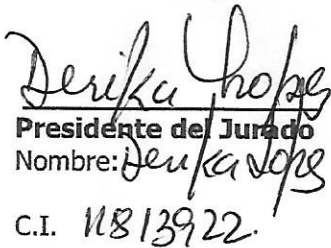 Derika Lopez
Presidente del Jurado
Nombre: Derika Lopez
C.I. 11813922.